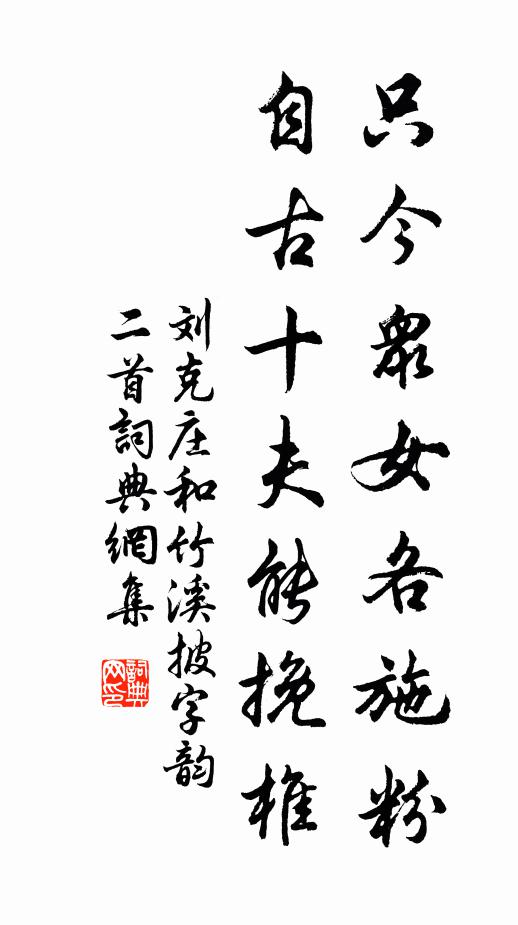 只今眾女各施粉
自古十夫能挽椎
刘克庄和竹溪披字韵
二首詞典網集
詞典网印